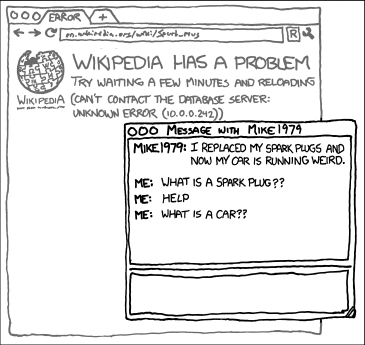 ERROR
en.wikipedia.org/wiki/Spark_plug
R
WIKIPEDIA
WIKIPEDIA HAS A PROBLEM
TRY WAITING A FEW MINUTES AND RELOADING
(CAN'T CONTACT THE DATABASE SERVER:
UNKNOWN ERROR (10.0.0.242))
MESSAGE WITH MIKE1979
MIKE1979: I REPLACED MY SPARK PLUGS AND
NOW MY CAR IS RUNNING WEIRD.
ME: WHAT IS A SPARK PLUG??
ME: HELP
ME: WHAT IS A CAR??